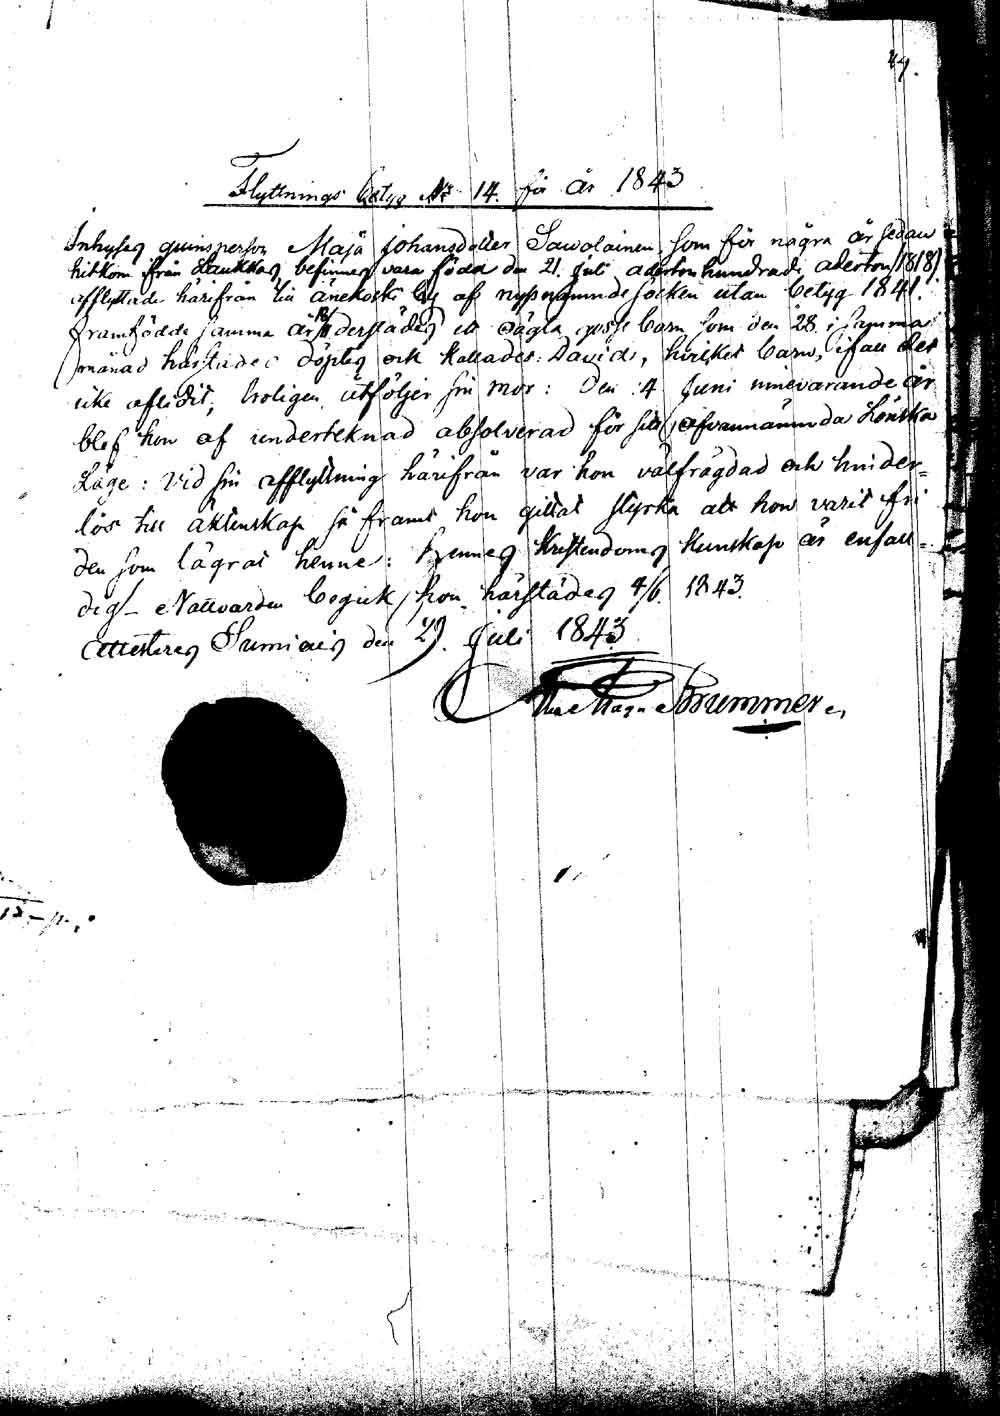 49.
Flyttnings betyg No 14. för år 1843
Inhyses qvinsperson Maja Johansdotter Sawolainen, som för några år sedan
hitkom från Laukkas, befinnes vara född den 21. Juli adertonhundrade aderton (1818)
afflyttade härifrån till Änekoski by af nyssnämnde socken utan betyg 1841.
framfödde samma år derstädes ett oägta gosse barn som den 28. i samma
månad härstädes döptes och kallades: David, hvilket barn, ifall det
icke aflidit, troligen åtföljer sin mor: Den 4 Juni innevarande år
blef hon af undertecknad absolverad för sitt ofvannämnda Lönska
Läge: Vid sin afflyttning härifrån var hon välfrägdad och hinder=
lös till äktenskap så framt hon gittat styrka att hon varit fri
den som lägrat henne: Hennes Kristendoms kunskap är enfall=
dig – Nattvarden begick hon härstädes 4/6. 1843.
Attesteras Sumiais den 29. Juli 1843
Brummer.